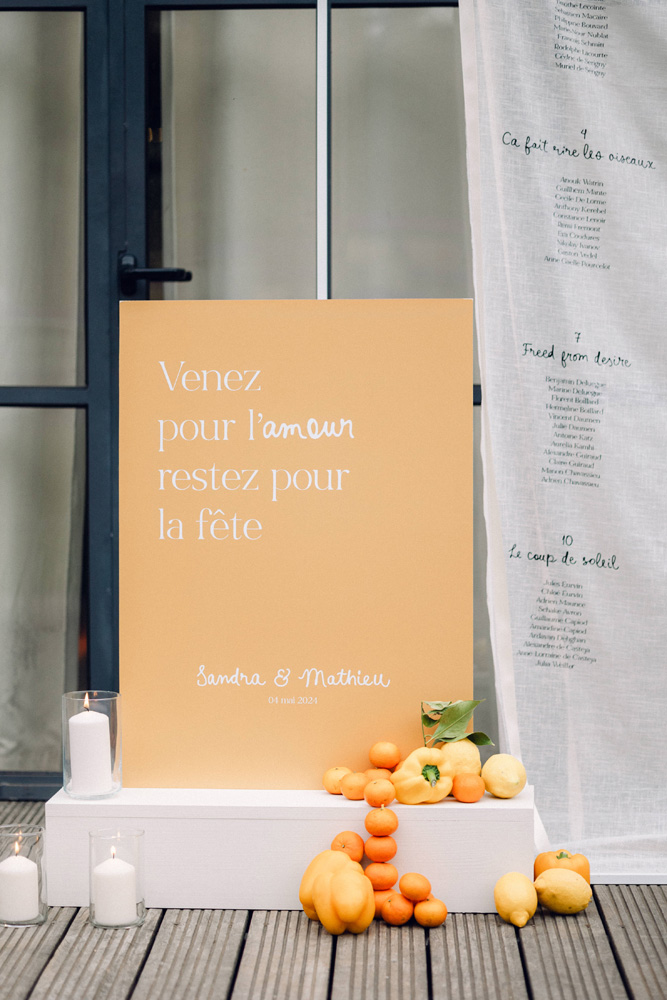 Venez
pour l'amour
restez pour
la fête
Sandra & Mathieu
04 mai 2024
Philippe Bouvard
Muriel de Serigny
4
Ca fait rire les oiseaux
Anouk Warin
Guilhem Mante
Cecile De Lorme
Anthony Kerebel
Constance Lenoir
Remi Fremont
Nikolay Ivanov
Gaston Vedel
Anne Gaelle Pourcelot
7
Freed from desire
Benjamin Deluegue
Marine Deluegue
Florent Boillard
Hermeline Boillard
Vincent Daumen
Julie Daumen
Antoine Katz
Aurelia Kambi
Alexandre Guiraud
Claire Guiraud
Manon Chavassieu
Adrien Chavassieu
10
Le coup de soleil
Jules Eurvin
Chloe Eurvin
Adrien Maurice
Guillaume Capiod
Amandine Capiod
Ardavan Dehghan
Alexandre de Casteja
Anne-Lorraine de Casteja